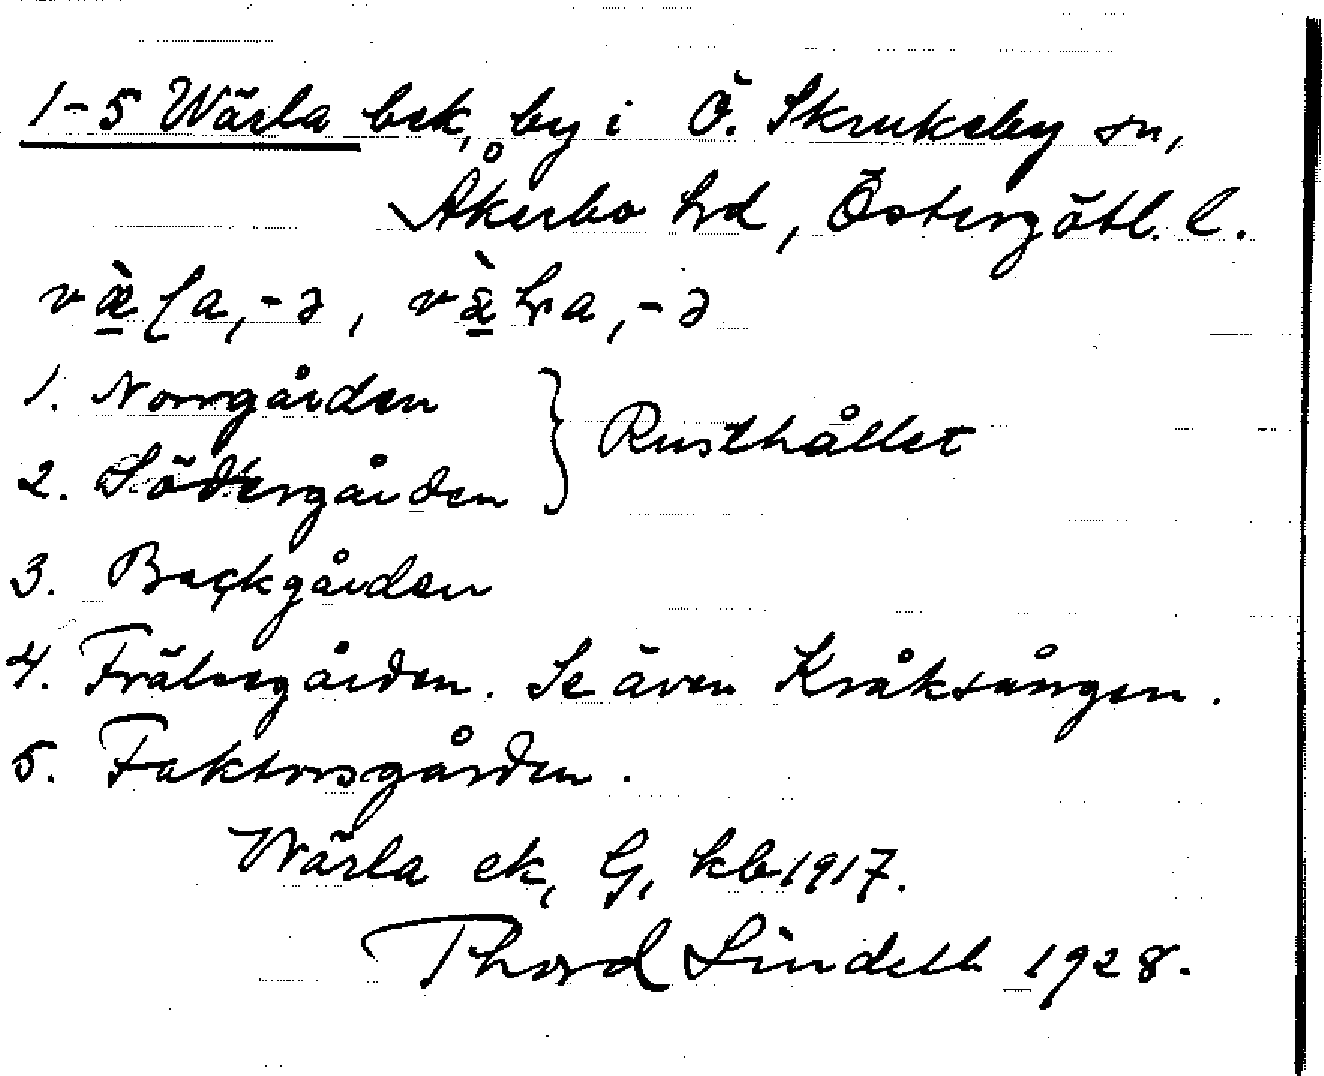 1-5 Wärla bek, by i Ö. Skrukeby sn,
Åkerbo hd, Östergötl. l.
1. Norrgården
2. Södergården } Rusthållet
3. Backgården
4. Frälsegården. Se även Kråksången.
5. Faktorsgården.
Wärla ek, G, kb 1917.
Thord Lindell 1928.